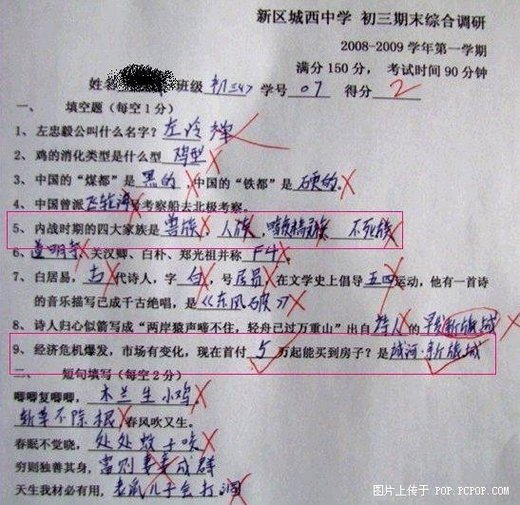 新区城西中学 初三期末综合调研
2008-2009学年第一学期
满分150分， 考试时间90分钟
姓名 班级 初三<4> 学号 07 得分 2
一、 填空题（每空1分）
1、左忠毅公叫什么名字？左冷禅
2、鸡的消化类型是什么型 鸡型
3、中国的“煤都”是 黑的，中国的“铁都”是 硬的。
4、中国曾派 飞轮海号考察船去北极考察。
5、内战时期的四大家族是 兽族、人族、暗夜精灵族 不死族
6、道明寺、关汉卿、白朴、郑光祖并称 F4。
7、白居易，古代诗人，字 白，号 居易 在文学史上倡导 五四运动，他有一首诗
的音乐描写已成千古绝唱，是《东风破》
8、诗人归心似箭写成“两岸猿声啼不住，轻舟已过万重山”出自 诗人 的
9、经济危机爆发，市场有变化，现在首付 5 万起能买到房子？是 城河·新旅城
二、 短句填写（每空2分）
唧唧复唧唧，木兰生小鸡。
斩草不除根，春风吹又生。
春眠不觉晓，处处蚊子咬。
穷则独善其身，富则妻妾成群
天生我材必有用，老鼠儿子会打洞
图片上传于 POP.PCPOP.com